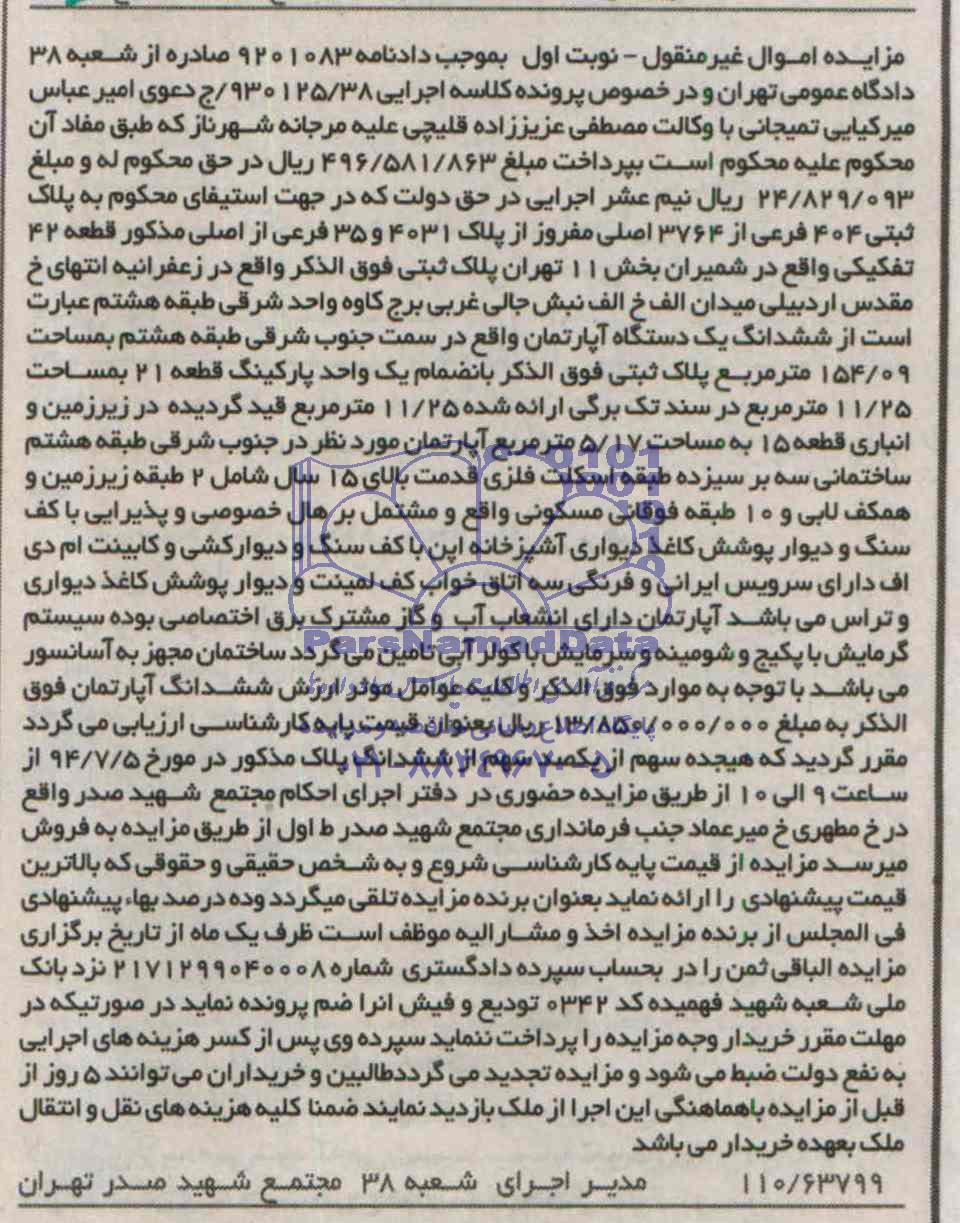 مزایده اموال غیرمنقول - نوبت اول بموجب دادنامه ۹۲۰۱۰۸۳ صادره از شعبه ۳۸
دادگاه عمومی تهران و در خصوص پرونده کلاسه اجرایی ۹۳۰۱۲۵/۳۸/ج دعوی امیر عباس
میرکیایی تمیجانی با وکالت مصطفی عزیززاده قلیچی علیه مرجانه شهرناز که طبق مفاد آن
محکوم علیه محکوم است بپرداخت مبلغ ۴۹۶/۵۸۱/۸۶۳ ریال در حق محکوم له و مبلغ
۲۴/۸۲۹/۰۹۳ ریال نیم عشر اجرایی در حق دولت که در جهت استیفای محکوم به پلاک
ثبتی ۴۰۴ فرعی از ۳۷۶۴ اصلی مفروز از پلاک ۴۰۳۱ و ۳۵ فرعی از اصلی مذکور قطعه ۴۲
تفکیکی واقع در شمیران بخش ۱۱ تهران پلاک ثبتی فوق الذکر واقع در زعفرانیه انتهای خ
مقدس اردبیلی میدان الف خ الف نبش جالی غربی برج کاوه واحد شرقی طبقه هشتم عبارت
است از ششدانگ یک دستگاه آپارتمان واقع در سمت جنوب شرقی طبقه هشتم بمساحت
۱۵۴/۰۹ مترمربع پلاک ثبتی فوق الذکر بانضمام یک واحد پارکینگ قطعه ۲۱ بمساحت
۱۱/۲۵ مترمربع در سند تک برگی ارائه شده ۱۱/۲۵ مترمربع قید گردیده در زیرزمین و
انباری قطعه ۱۵ به مساحت ۵/۱۷ مترمربع آپارتمان مورد نظر در جنوب شرقی طبقه هشتم
ساختمانی سه بر سیزده طبقه اسکلت فلزی قدمت بالای ۱۵ سال شامل ۲ طبقه زیرزمین و
همکف لابی و ۱۰ طبقه فوقانی مسکونی واقع و مشتمل بر هال خصوصی و پذیرایی با کف
سنگ و دیوار پوشش کاغذ دیواری آشپزخانه اپن با کف سنگ و دیوارکشی و کابینت ام دی
اف دارای سرویس ایرانی و فرنگی سه اتاق خواب کف لمینت و دیوار پوشش کاغذ دیواری
و تراس می باشد آپارتمان دارای انشعاب آب و گاز مشترک برق اختصاصی بوده سیستم
گرمایش با پکیج و شومینه و سرمایش با کولر آبی تامین می گردد ساختمان مجهز به آسانسور
می باشد با توجه به موارد فوق الذکر و کلیه عوامل موثر ارزش ششدانگ آپارتمان فوق
الذکر به مبلغ ۱۳/۸۵۰/۰۰۰/۰۰۰ ریال بعنوان قیمت پایه کارشناسی ارزیابی می گردد
مقرر گردید که هیجده سهم از یکصد سهم از ششدانگ پلاک مذکور در مورخ ۹۴/۷/۵ از
ساعت ۹ الی ۱۰ از طریق مزایده حضوری در دفتر اجرای احکام مجتمع شهید صدر واقع
در خ مطهری خ میرعماد جنب فرمانداری مجتمع شهید صدر ط اول از طریق مزایده به فروش
میرسد مزایده از قیمت پایه کارشناسی شروع و به شخص حقیقی و حقوقی که بالاترین
قیمت پیشنهادی را ارائه نماید بعنوان برنده مزایده تلقی میگردد و ده درصد بهاء پیشنهادی
فی المجلس از برنده مزایده اخذ و مشارالیه موظف است ظرف یک ماه از تاریخ برگزاری
مزایده الباقی ثمن را در بحساب سپرده دادگستری شماره ۲۱۷۱۲۹۹۰۴۰۰۰۸ نزد بانک
ملی شعبه شهید فهمیده کد ۰۳۴۲ تودیع و فیش انرا ضم پرونده نماید در صورتیکه در
مهلت مقرر خریدار وجه مزایده را پرداخت ننماید سپرده وی پس از کسر هزینه های اجرایی
به نفع دولت ضبط می شود و مزایده تجدید می گردد طالبین و خریداران می توانند ۵ روز از
قبل از مزایده باهماهنگی این اجرا از ملک بازدید نمایند ضمنا کلیه هزینه های نقل و انتقال
ملک بعهده خریدار می باشد
۱۱۰/۶۳۷۹۹ مدیر اجرای شعبه ۳۸ مجتمع شهید صدر تهران
ParsNamadData